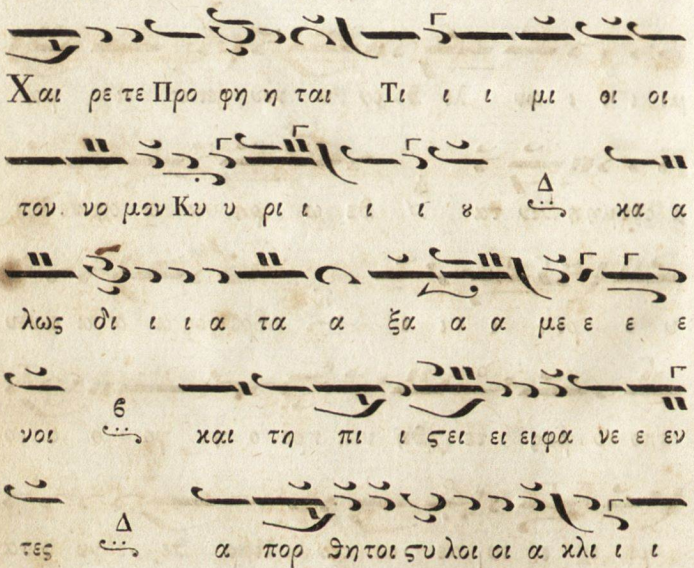 Χαι ρε τε Προ φη η ται Τι ι ι μι οι οι
τον νο μον Κυ υ ρι ι ι ι ȣ Δ κα α
λως δι ι ι α τα α ξα α α με ε ε ε
νοι β και τη πι ι ϛει ει ειφα νε ε εν
τες Δ α πορ θητοι ϛυ λοι οι α κλι ι ι